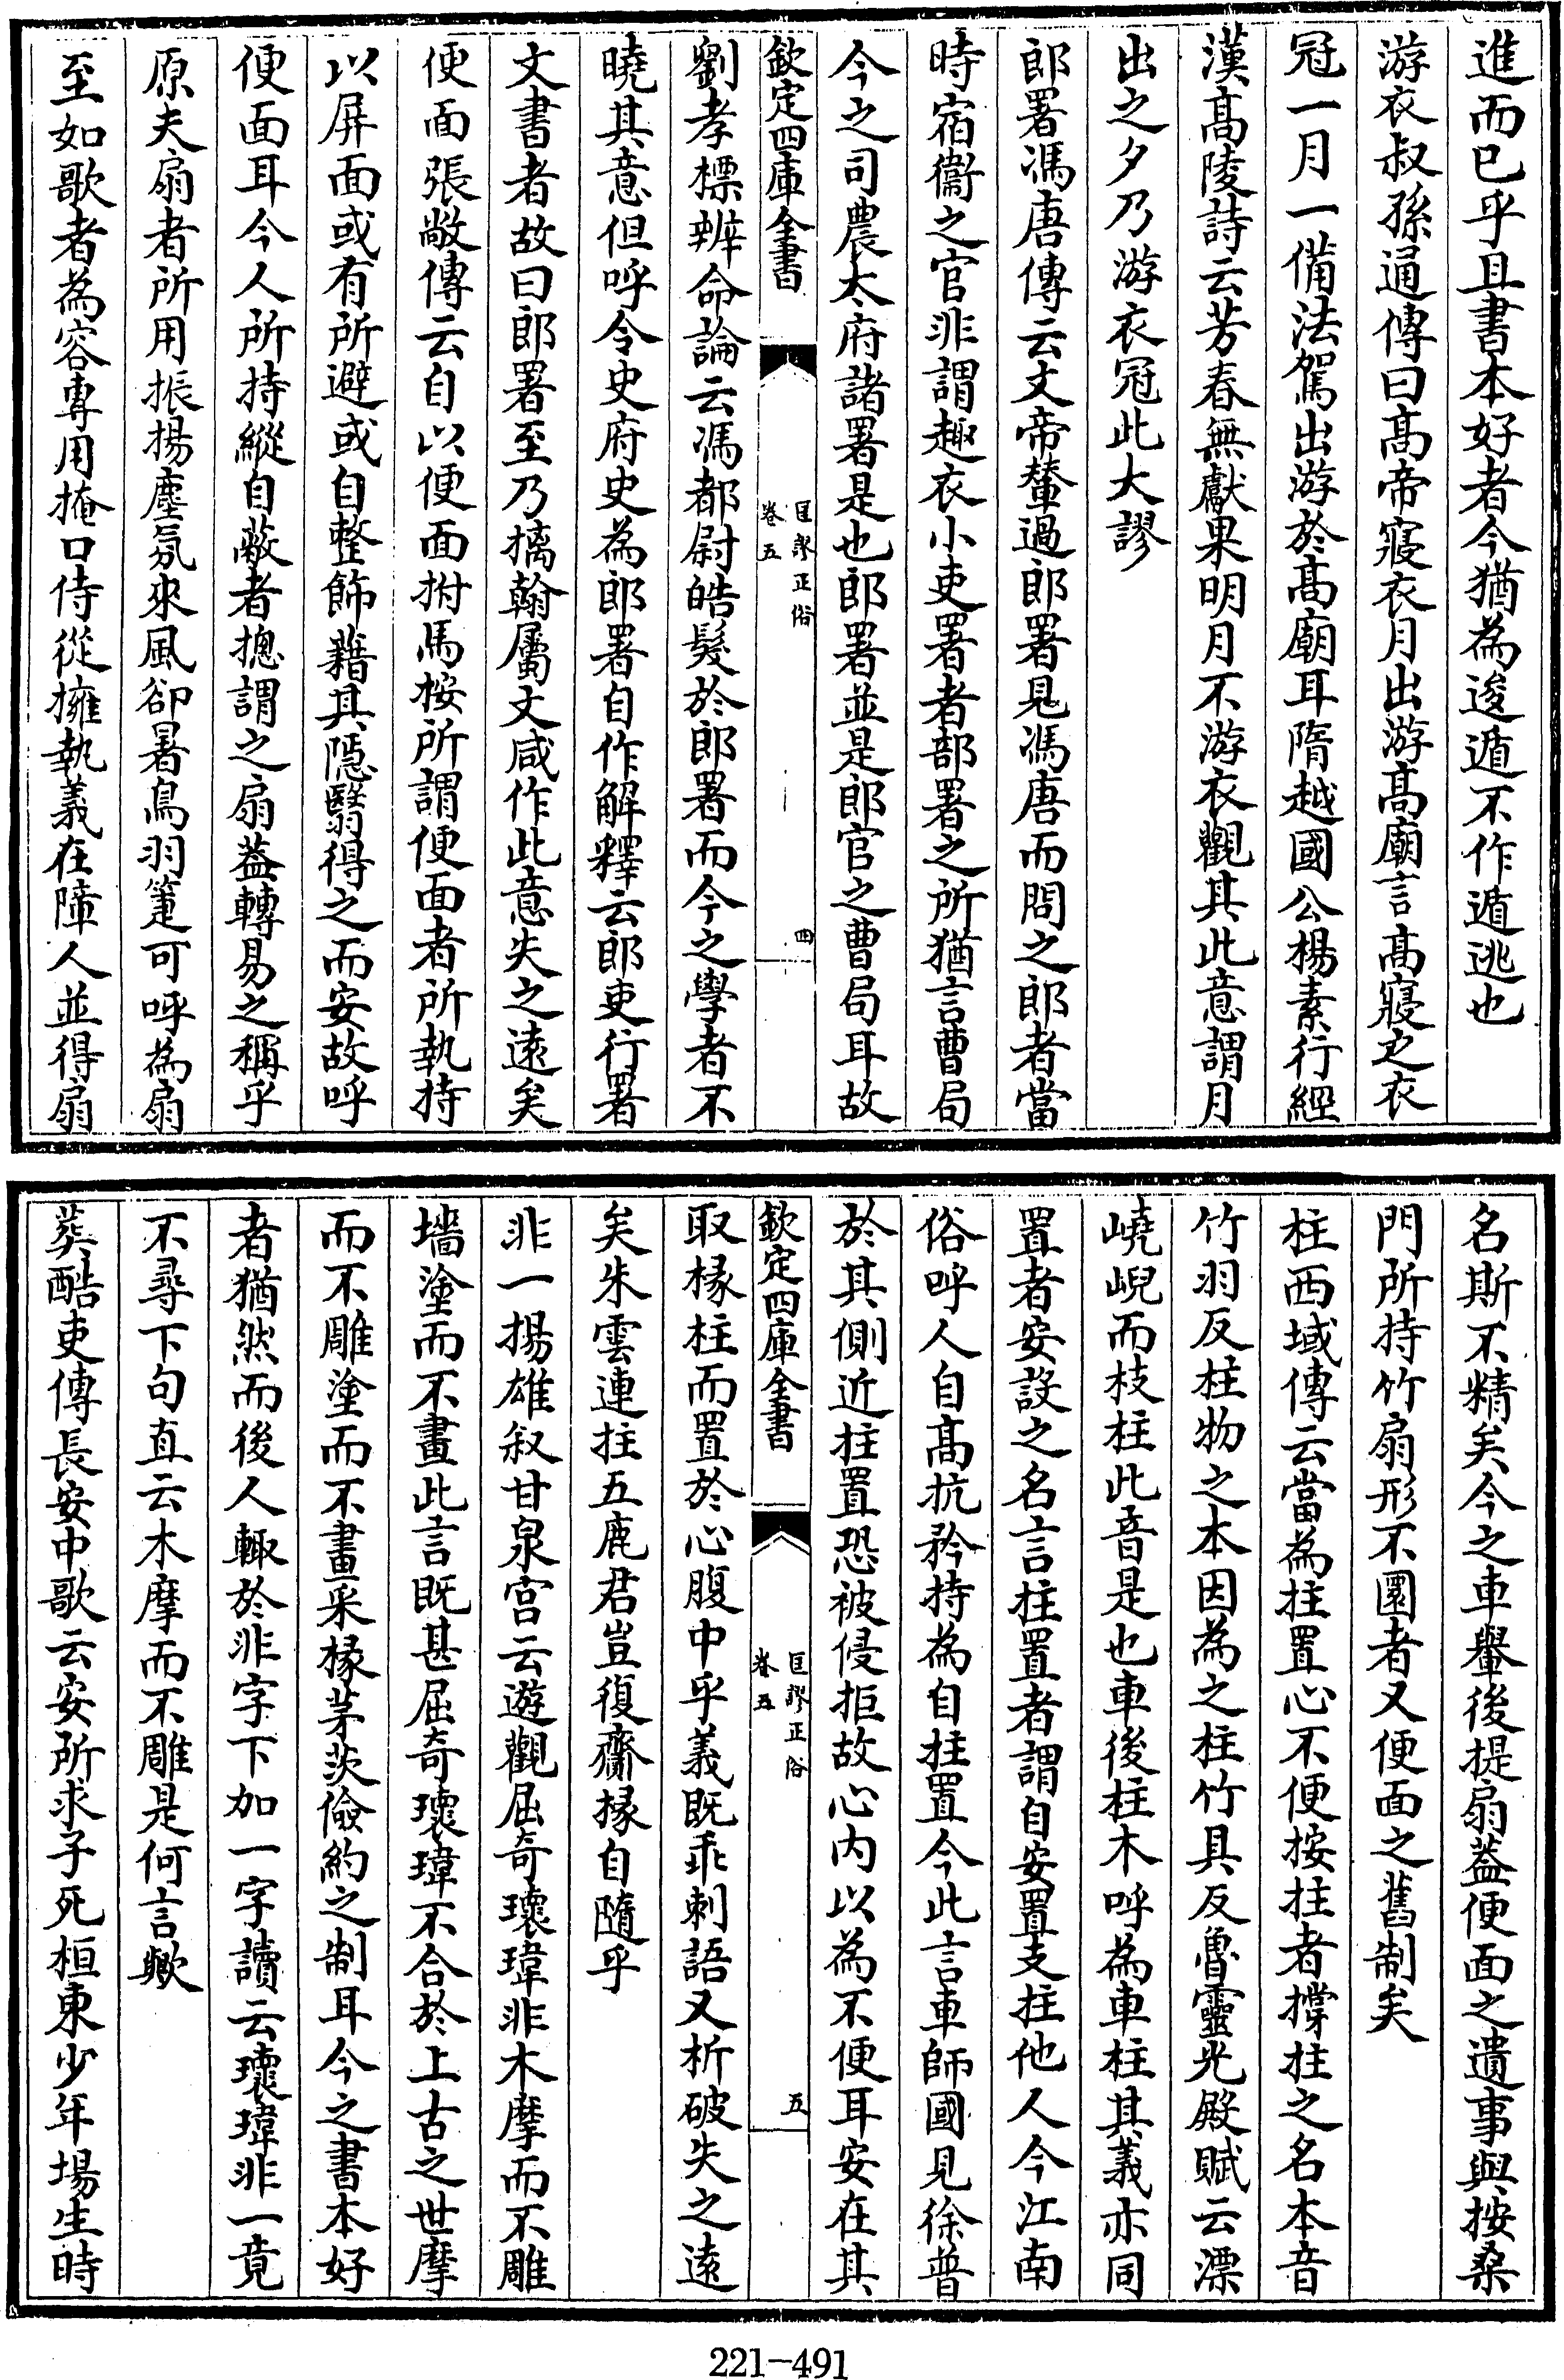 進而已乎且書本好者今猶為逡遁不作遁逃也
游衣叔孫通傳曰髙帝寢衣月出游髙廟言髙寢之衣
冠一月一備法駕出游於髙廟耳隋越國公楊素行經
漢髙陵詩云芳春無獻果明月不游衣觀其此意謂月
出之夕乃游衣冠此大謬
郎署馮唐傳云文帝輦過郎署見馮唐而問之郎者當
時宿衞之官非謂趣衣小吏署者部署之所猶言曹局
今之司農太府諸署是也郎署並是郎官之曹局耳故
欽定四庫全書
匡謬正俗
卷五
四
劉孝標辨命論云馮都尉皓髮於郎署而今之學者不
曉其意但呼令史府史為郎署自作解釋云郎吏行署
文書者故曰郎署至乃摛翰屬文咸作此意失之遠矣
便面張敞傳云自以便面拊馬按所謂便面者所執持
以屏面或有所避或自整飾藉其隱翳得之而安故呼
便面耳今人所持縱自蔽者摠謂之扇蓋轉易之稱乎
原夫扇者所用振揚塵氛來風卻暑鳥羽箑可呼為扇
至如歌者為容專用掩口侍從擁執義在障人並得扇
名斯不精矣今之車轝後提扇蓋便面之遺事與按桑
門所持竹扇形不圓者又便面之舊制矣
柱西域傳云當為拄置心不便按拄者撑拄之名本音
竹羽反柱物之本因為之柱竹具反魯靈光殿賦云漂
嶢峴而枝柱此音是也車後柱木呼為車柱其義亦同
置者安設之名言拄置者謂自安置支拄他人今江南
俗呼人自髙抗矜持為自拄置今此言車師國見徐普
於其側近拄置恐被侵拒故心內以為不便耳安在其
欽定四庫全書
匡謬正俗
卷五
五
取椽柱而置於心腹中乎義既乖剌語又析破失之遠
矣朱雲連拄五鹿君豈復齎椽自隨乎
非一揚雄叙甘泉宫云遊觀屈奇瓌瑋非木摩而不雕
墻塗而不畫此言既甚屈奇瓌瑋不合於上古之世摩
而不雕塗而不畫采椽茅茨儉約之制耳今之書本好
者猶然而後人輙於非字下加一字讀云瓌瑋非一竟
不尋下句直云木摩而不雕是何言歟
葬酷吏傳長安中歌云安所求子死桓東少年場生時
221-491